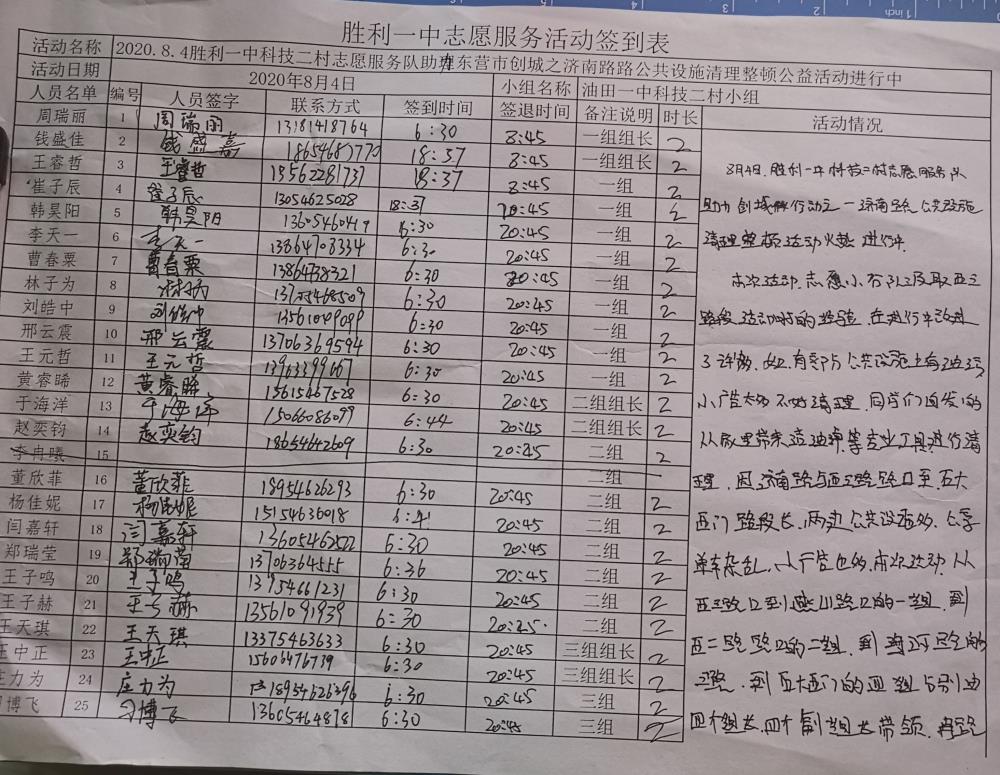 胜利一中志愿服务活动签到表
活动名称 2020.8.4胜利一中科技二村志愿服务队助力东营市创城之济南路路公共设施清理整顿公益活动进行中
活动日期 2020年8月4日 小组名称 油田一中科技二村小组
人员名单 编号 人员签字 联系方式 签到时间 签退时间 备注说明 时长 活动情况
周瑞丽 1 周瑞丽 13181418764 6:30 8:45 一组组长 2
钱盛佳 2 18654687770 18:37 8:45 一组组长 2
王睿哲 3 王睿哲 13562281737 18:37 8:45 一组 2
崔子辰 4 崔子辰 13054625028 18:37 20:45 一组 2
韩昊阳 5 韩昊阳 13605460419 6:30 20:45 一组 2
李天一 6 李天一 13864708334 6:30 20:45 一组 2
曹春粟 7 曹春粟 13864738321 6:30 20:45 一组 2
林子为 8 13705468509 6:30 20:45 一组 2
刘皓中 9 刘皓中 13561049099 6:30 20:45 一组 2
邢云震 10 邢云震 13706369594 6:30 20:45 一组 2
王元哲 11 王元哲 13963399667 6:30 20:45 一组 2
黄睿晞 12 黄睿晞 15615467528 6:30 20:45 二组组长 2
于海洋 13 于海洋 15066086099 6:44 20:45 二组组长 2
赵奕钧 14 赵奕钧 18654642609 6:30 20:45 二组 2
李冉曦 15 二组
董欣菲 16 董欣菲 18954626293 6:30 20:45 二组 2
杨佳妮 17 杨佳妮 15154636018 6:41 20:45 二组 2
闫嘉轩 18 闫嘉轩 13605462522 6:30 20:45 二组 2
郑瑞莹 19 13706364555 6:36 20:45 二组 2
王子鸣 20 王子鸣 13754661231 6:30 20:45 二组 2
王子赫 21 王子赫 13561091939 6:30 20:45 二组 2
王天琪 22 王天琪 13375463633 6:30 20:45 三组组长 2
王中正 23 王中正 15606476739 6:30 20:45 三组组长 2
庄力为 24 庄力为 18954626396 6:30 20:45 三组 2
博飞 25 刁博飞 13605464818 6:30 20:45 三组 2
8月4日,胜利一中科技二村志愿服务队
助力创城行动之一济南路公共设施
清理整顿活动火热进行中.
本次活动,志愿小分队汲取西三
路段活动时的经验,在进行中改进
了许多,如有部分公共设施上有油污
小广告太多不好清理,同学们自发的
从家里带来洁油等专业工具进行清
理.因济南路与西三路路口至石大
西门路段长,两边公共设备多,共享
单车杂乱,小广告也多,本次活动,从
西三路口到燕山路口的一组,到
西二路路口的二组,到黄河路的
三组,到石大西门的四组分别由
四个组长,四个副组长带领